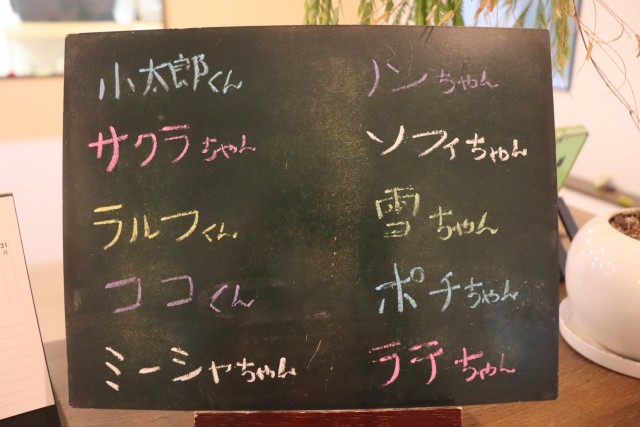 小太郎くん
サクラちゃん
ラルフくん
ココくん
ミーシャちゃん
ノンちゃん
ソフィちゃん
雪ちゃん
ポチちゃん
ラテちゃん
31